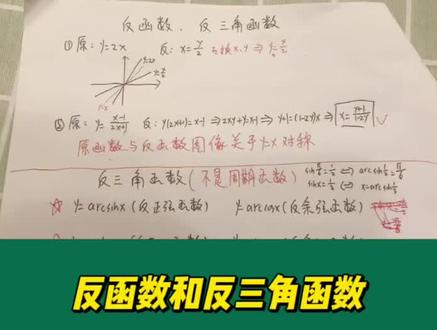 反函数、反三角函数
① 原: y=2x 反: x=y/2 互换x,y ⇒ y=x/2
y=2x
y=x
② 原: y=(x-1)/(2x+1) 反: y(2x+1)=x-1 ⇒ 2xy+y=x-1 ⇒ y+1=(1-2y)x ⇒ x=(y+1)/(1-2y)
原函数与反函数图像关于y=x对称
反三角函数(不是周期函数) sin π/6=1/2 ⇔ arcsin 1/2=π/6
sinx=1/3 ⇔ x=arcsin 1/3
☆ y=arcsinx(反正弦函数) y=arccosx(反余弦函数)
反函数和反三角函数